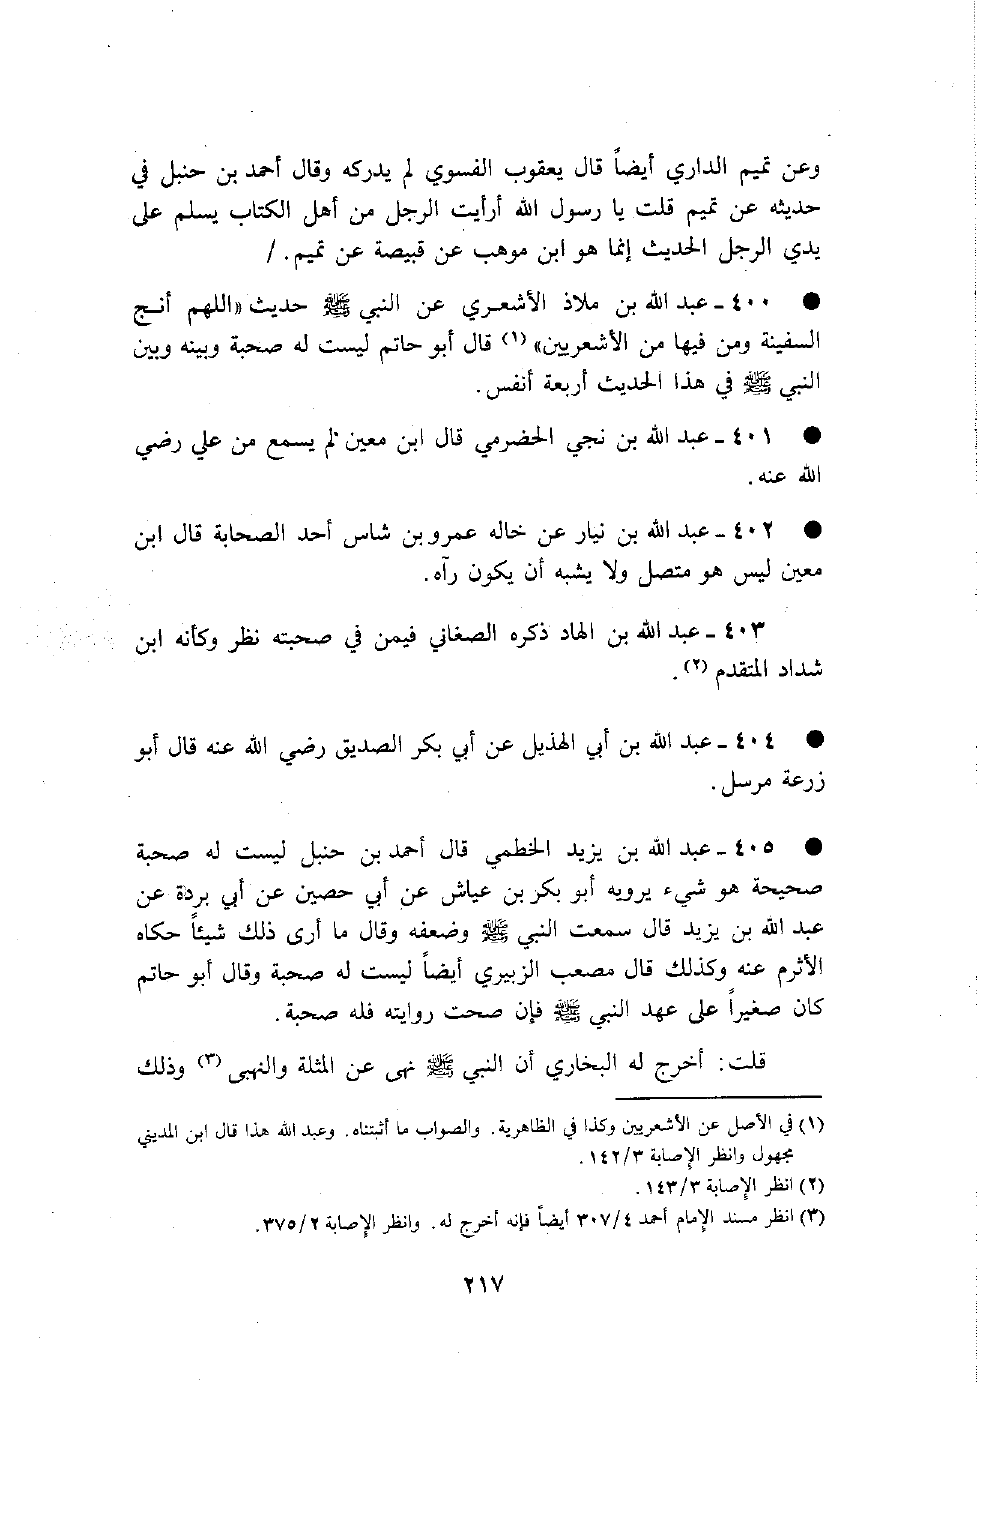 وعن تميم الداري أيضاً قال يعقوب الفسوي لم يدركه وقال أحمد بن حنبل في
حديثه عن تميم قلت يا رسول الله أرأيت الرجل من أهل الكتاب يسلم على
يدي الرجل الحديث إنما هو ابن موهب عن قبيصة عن تميم. /
● ٤٠٠ ـ عبد الله بن ملاذ الأشعري عن النبي ﷺ حديث «اللهم أنج
السفينة ومن فيها من الأشعريين» (١) قال أبو حاتم ليست له صحبة وبينه وبين
النبي ﷺ في هذا الحديث أربعة أنفس.
● ٤٠١ ـ عبد الله بن نجي الحضرمي قال ابن معين لم يسمع من علي رضي
الله عنه.
● ٤٠٢ ـ عبد الله بن نيار عن خاله عمرو بن شاس أحد الصحابة قال ابن
معين ليس هو متصل ولا يشبه أن يكون رآه.
٤٠٣ ـ عبد الله بن الهاد ذكره الصغاني فيمن في صحبته نظر وكأنه ابن
شداد المتقدم (٢).
● ٤٠٤ ـ عبد الله بن أبي الهذيل عن أبي بكر الصديق رضي الله عنه قال أبو
زرعة مرسل.
● ٤٠٥ ـ عبد الله بن يزيد الخطمي قال أحمد بن حنبل ليست له صحبة
صحيحة هو شيء يرويه أبو بكر بن عياش عن أبي حصين عن أبي بردة عن
عبد الله بن يزيد قال سمعت النبي ﷺ وضعفه وقال ما أرى ذلك شيئاً حكاه
الأثرم عنه وكذلك قال مصعب الزبيري أيضاً ليست له صحبة وقال أبو حاتم
كان صغيراً على عهد النبي ﷺ فإن صحت روايته فله صحبة.
قلت: أخرج له البخاري أن النبي ﷺ نهى عن المثلة والنهبى (٣) وذلك
(١) في الأصل عن الأشعريين وكذا في الظاهرية. والصواب ما أثبتناه. وعبد الله هذا قال ابن المديني
مجهول وانظر الإصابة ١٤٢/٣.
(٢) انظر الإصابة ١٤٣/٣.
(٣) انظر مسند الإمام أحمد ٣٠٧/٤ أيضاً فإنه أخرج له. وانظر الإصابة ٣٧٥/٢.
٢١٧